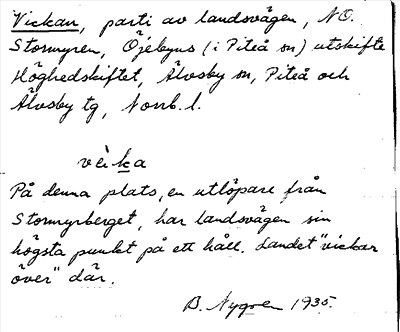 Vickan, parti av landsvägen, NO.
Stormyren, Öjebyns (i Piteå sn) utskifte
Höghedskiftet, Älvsby sn, Piteå och
Älvsby tg, Norrb. l.
vèika
På denna plats, en utlöpare från
Stormyrberget, har landsvägen sin
högsta punkt på ett håll. Landet "vickar
över" där.
B. Nygren 1935.